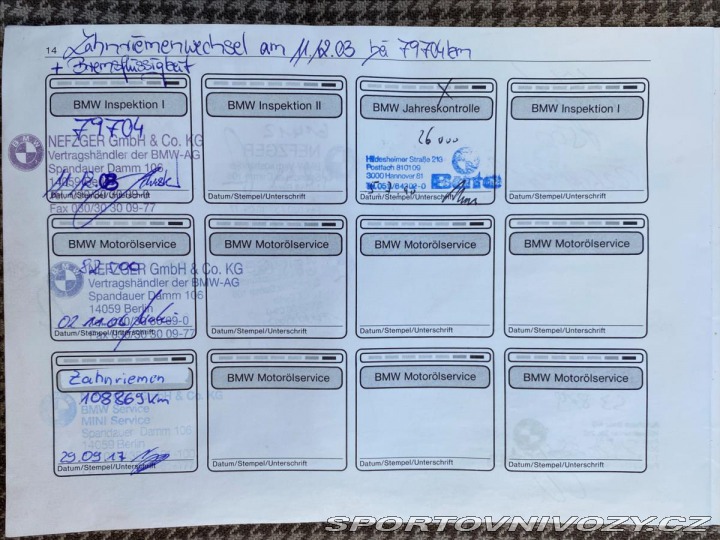 14 Zahnriemenwechsel am 11.12.03 bei 79704 km
+ Bremsflüssigkeit
BMW Inspektion I
79704
NEFZGER GmbH & Co. KG
Vertragshändler der BMW-AG
Spandauer Damm 106
11.12.03
Datum/Stempel/Unterschrift
Fax 030/30 30 09-77
BMW Inspektion II
Datum/Stempel/Unterschrift
BMW Jahreskontrolle
26 000
Hildesheimer Straße 213
Postfach 810109
3000 Hannover 81
Datum/Stempel/Unterschrift
BMW Inspektion I
Datum/Stempel/Unterschrift
BMW Motorölservice
NEFZGER GmbH & Co. KG
Vertragshändler der BMW-AG
Spandauer Damm 106
14059 Berlin
Datum/Stempel/Unterschrift
BMW Motorölservice
Datum/Stempel/Unterschrift
BMW Motorölservice
Datum/Stempel/Unterschrift
BMW Motorölservice
Datum/Stempel/Unterschrift
Zahnriemen
108869 km
BMW Service
MINI Service
Spandauer Damm 106
14059 Berlin
29.09.17
Datum/Stempel/Unterschrift
BMW Motorölservice
Datum/Stempel/Unterschrift
BMW Motorölservice
Datum/Stempel/Unterschrift
BMW Motorölservice
Datum/Stempel/Unterschrift
SPORTOVNIVOZY.CZ